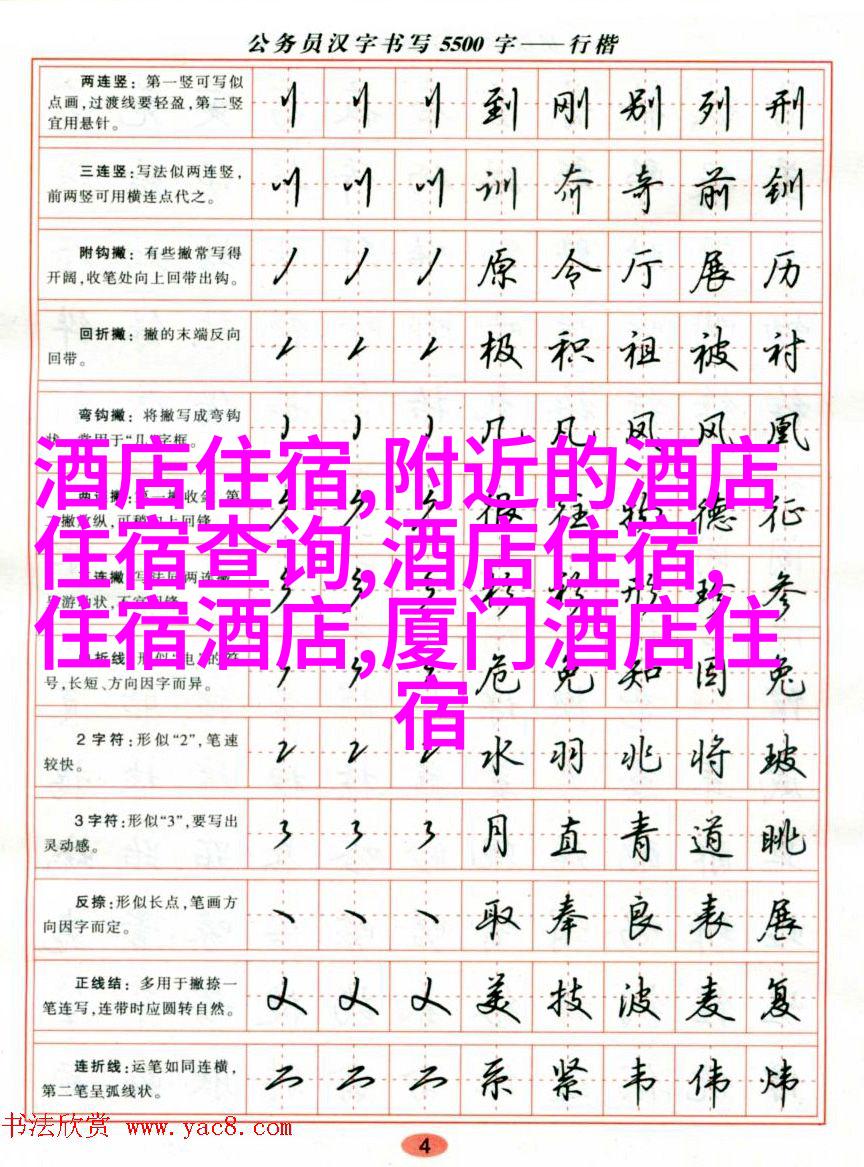 公务员汉字书写 5500 字——行楷
两连竖：第一竖可写似
点画,过渡线要轻盈,第二竖
宜用悬针。
到 刚 别 列 刑
三连竖:写法似两连竖,
前两竖可用横连点代之。
训 夼 奇 前 钏
附钩撇：有些撇常写得
开阔,收笔处向上回带出钩。
原 令 厅 展 历
回折撇：撇的末端反向
回带。
极 积 祖 被 衬
弯钩撇：将撇写成弯钩
几 凡 凤 风 凰
酒店住宿,附近的酒店
住宿查询,酒店住宿,
住宿酒店,厦门酒店住
宿
德 征
形 珍 参
号,长短、方向因字而异。
危 免 知 因 兔
2字符:形似“2”,笔速
较快。
水 羽 兆 将 玻
3字符:形似“3”,要写出
灵动感。
月 直 青 道 眺
反捺:形似长点,笔画方
向因字而定。
取 奉 良 表 展
正线结：多用于撇捺一
笔连写,连带时应圆转自然。
美 技 波 麦 复
连折线:运笔如同连横,
第二笔呈弧线状。
系 紧 韦 伟 炜
书法欣赏 www.yac8.com
4